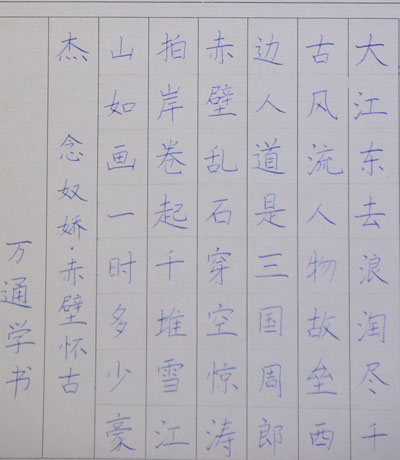 大江东去浪淘尽千
古风流人物故垒西
边人道是三国周郎
赤壁乱石穿空惊涛
拍岸卷起千堆雪江
山如画一时多少豪
杰 念奴娇·赤壁怀古
万通学书